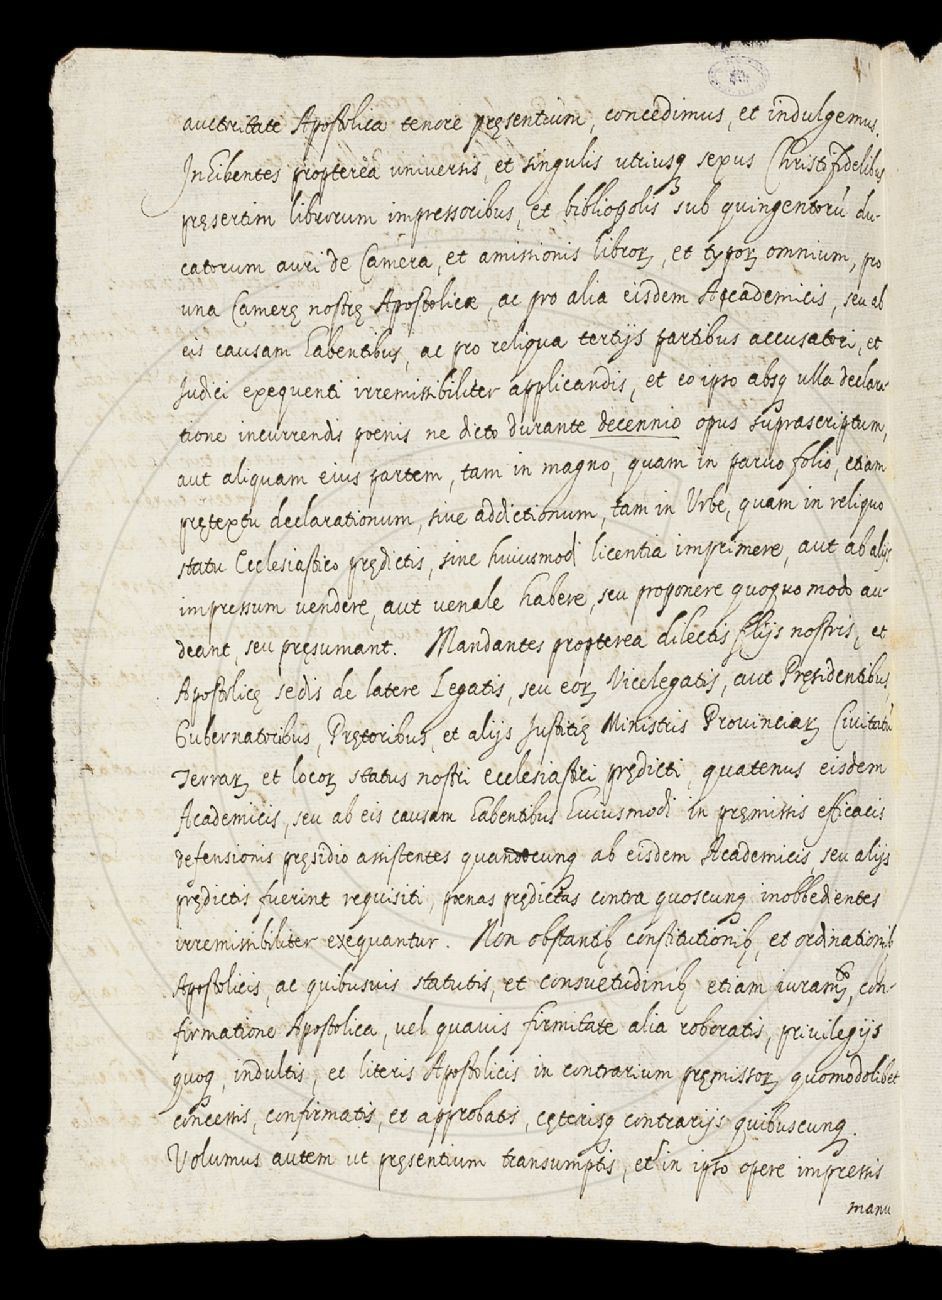 auctritate Apostolica tenore pręsentium, concedimus, et indulgemus.
Inhibentes propterea universis, et singulis utriusq sexus Christifidelibus
pręsertim librorum impressoribus, et bibliopolis sub quingentorū du-
catorum auri de Camera, et amissionis libroꝝ, et typoꝝ omnium, pro
una Camerę nostrę Apostolicæ, ac pro alia eisdem Academicis, seu ab
eis causam habentibus, ac pro reliqua tertijs partibus accusatori, et
Judici exequenti irremissibiliter applicandis, et eo ipso absq ulla declara-
tione incurrendis poenis ne dicto durante decennio opus suprascriptum,
aut aliquam eius partem, tam in magno, quam in paruo folio, etiam
pretextu declarationum, siue addictionum, tam in Urbe, quam in reliquo
statu Ecclesiastico prędictis, sine huiusmodi licentia imprimere, aut ab alijs
impressum vendere, aut venale habere, seu proponere quoquo modo au-
deant, seu pręsumant. Mandantes propterea dilectis filijs nostris, et
Apostolicę sedis de latere Legatis, seu eoꝝ Vicelegatis, aut Pręsidentibus,
Gubernatoribus, Prętoribus, et alijs Justitię Ministris Provinciaꝝ Civitatū
Terraꝝ et locoꝝ status nostri ecclesiastici prędicti, quatenus eisdem
Academicis, seu ab eis causam habentibus huiusmodi in pręmissis efficacis
defensionis pręsidio assistentes quandocunq ab eisdem Academicis seu alijs
prędictis fuerint requisiti, pęnas prędictas contra quoscunq inobbedientes
irremissibiliter exequantur. Non obstantibꝫ constitutionibꝫ, et ordinationibꝫ
Apostolicis, ac quibusvis statutis, et consuetudinibꝫ etiam iuramᵗᵒ, con-
firmatione Apostolica, vel quavis firmitate alia roboratis, privilegijs
quoq, indultis, et literis Apostolicis in contrarium pręmissoꝝ quomodolibet
concessis, confirmatis, et approbatis, cęterisq contrarijs quibuscunq.
Volumus autem ut pręsentium transumptis, et in ipso opere impressis
manu